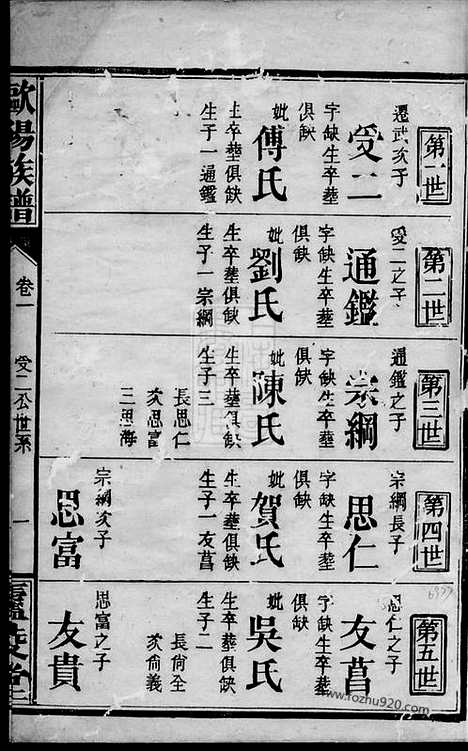 第一世
遷武次子
受二
字缺生卒塟
俱缺
妣傅氏
生卒塟俱缺
生子一通鑑
第二世
受二之子
通鑑
字缺生卒塟
俱缺
妣劉氏
生卒塟俱缺
生子一宗綱
第三世
通鑑之子
宗綱
字缺生卒塟
俱缺
妣陳氏
生卒塟俱缺
生子三
長思仁
次思富
三思海
第四世
宗綱長子
思仁
字缺生卒塟
俱缺
妣賀氏
生卒塟俱缺
生子一友菖
宗綱次子
思富
第五世
思仁之子
友菖
字缺生卒塟
俱缺
妣吳氏
生卒塟俱缺
生子二
長尙全
次尙義
思富之子
友貴
歐陽族譜
卷一
受二公世系
一
www.fozhu920.com